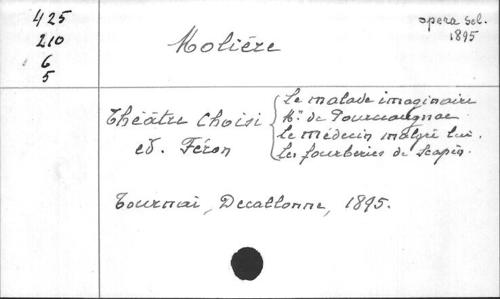 425
210
6
5
Molière
opera sel.
1895
Théâtre choisi
ed. Féron
Le malade imaginaire
Mr de Pourceaugnac
Le médecin malgré lui.
Les fourberies de Scapin.
Tournai, Decallonne, 1895.